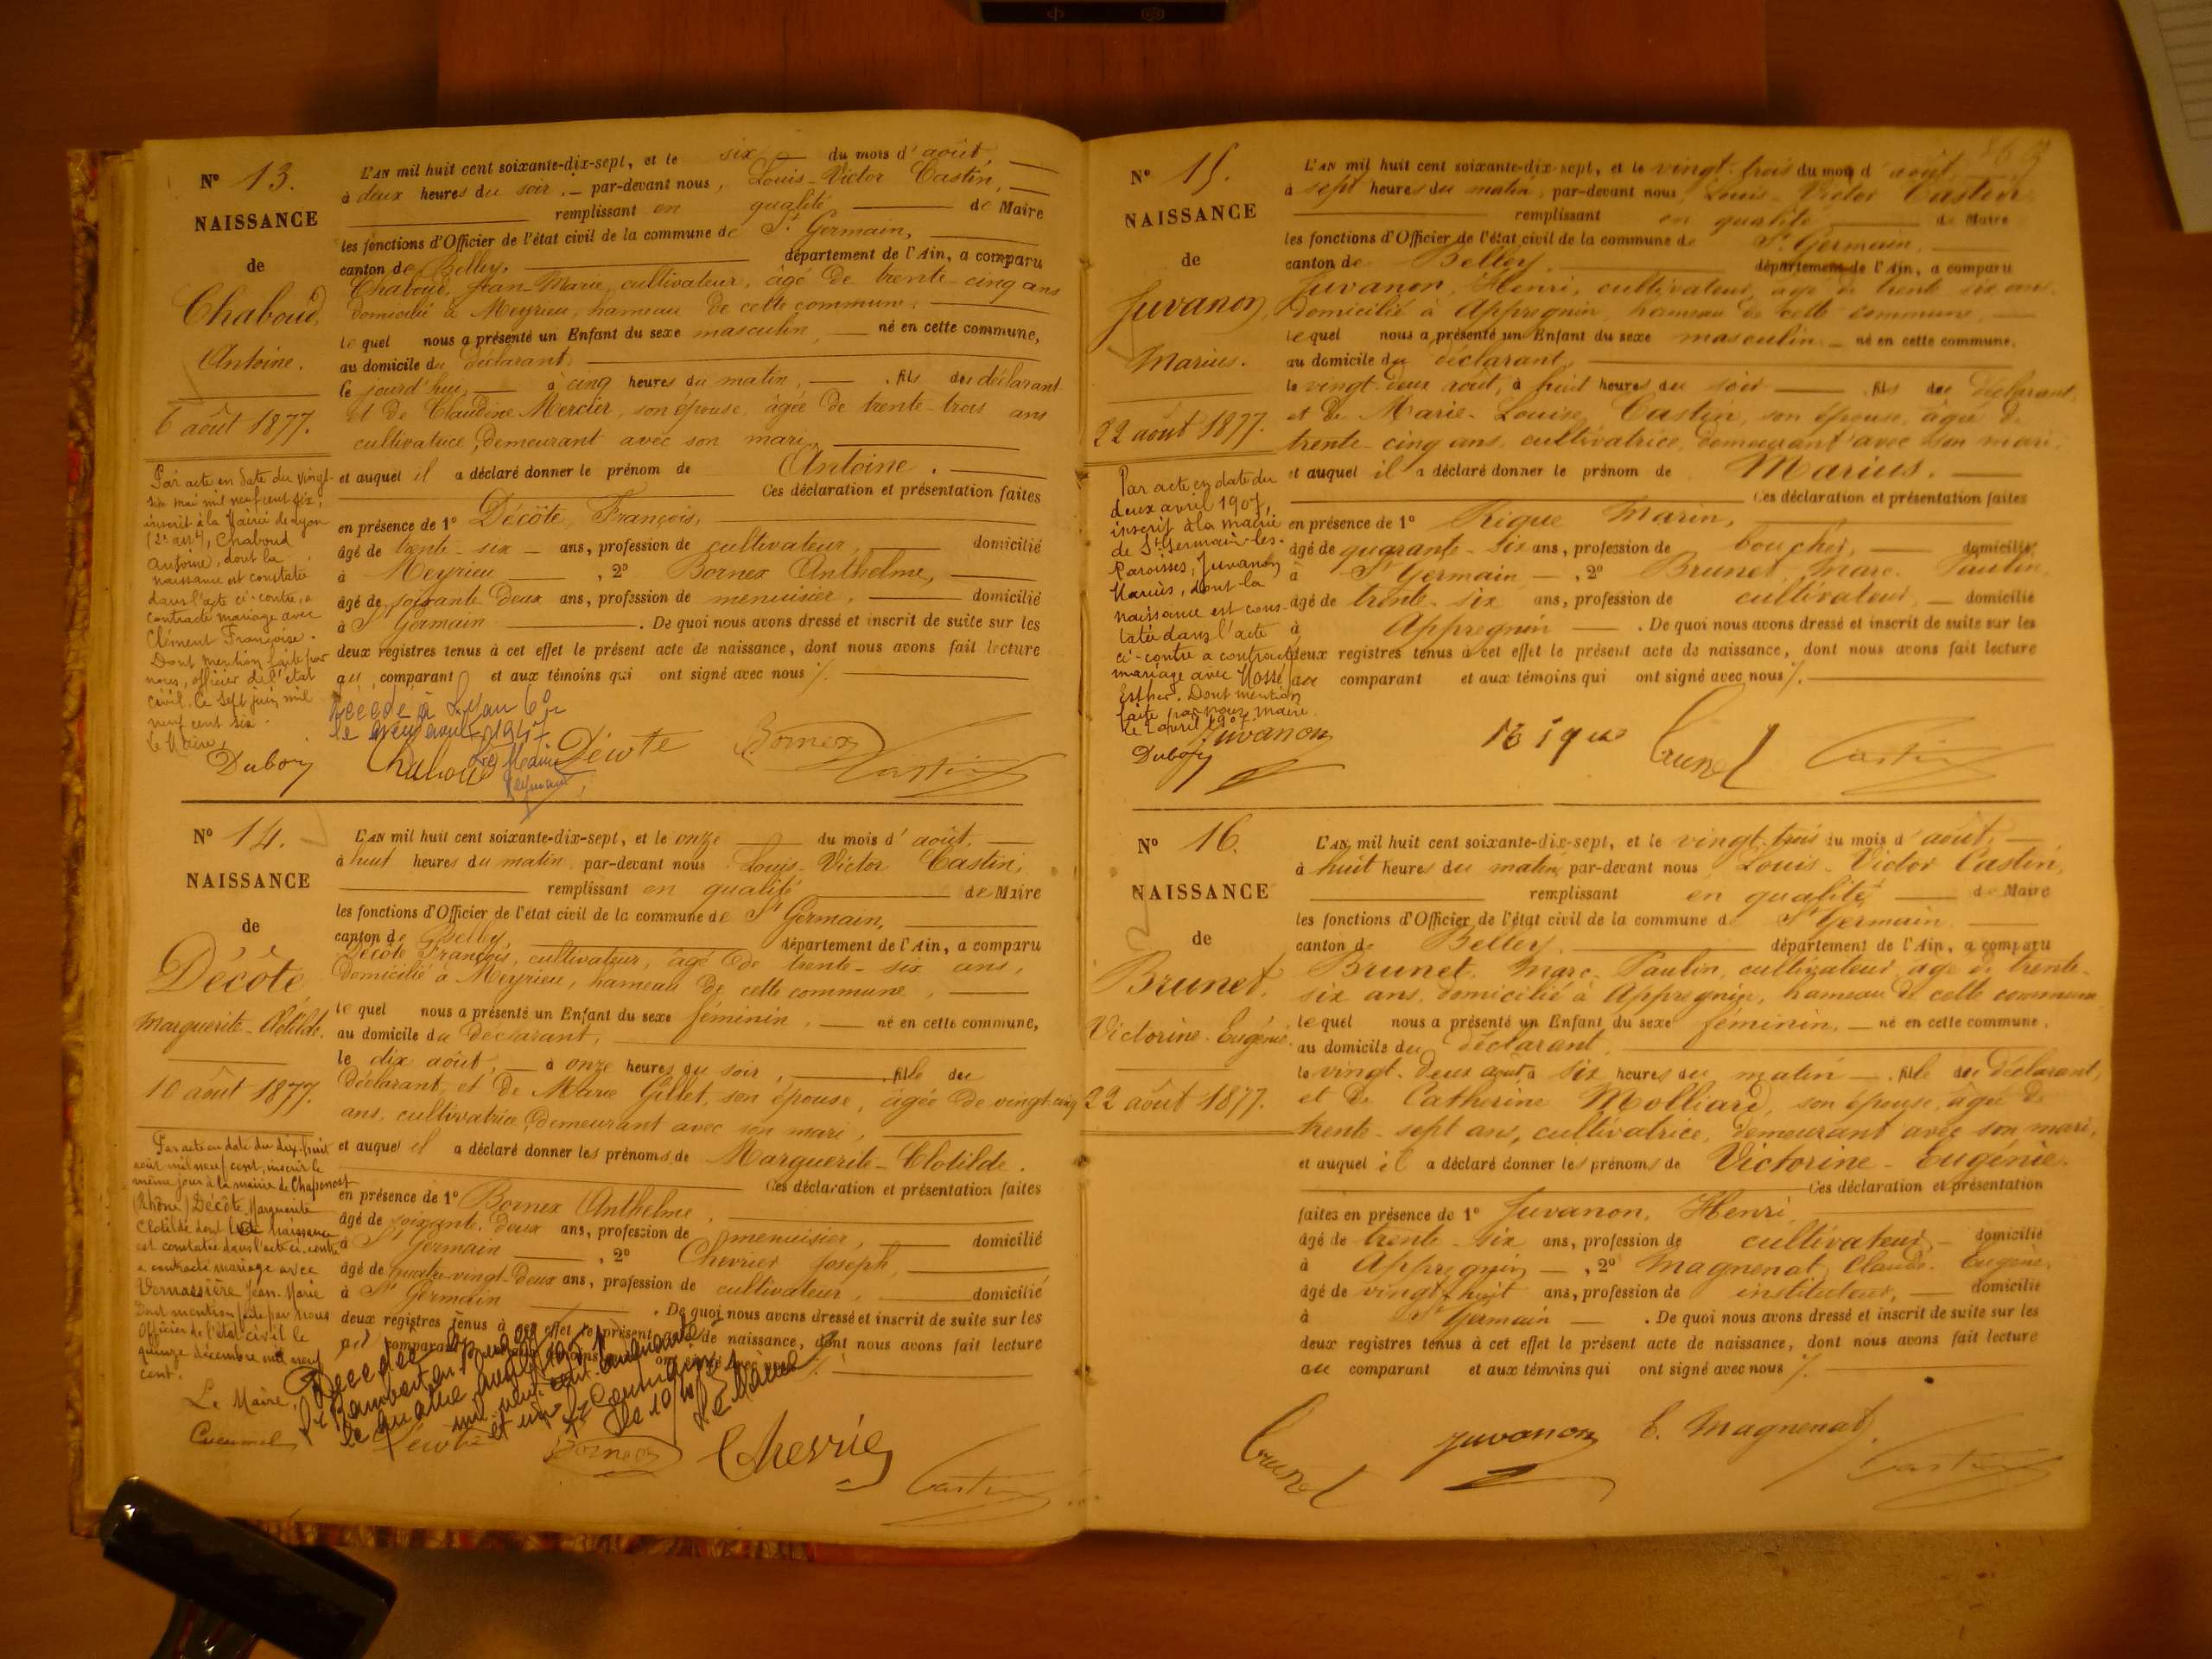 N° 13.
NAISSANCE
de
Chaboud,
Antoine.
6 août 1877.
L'AN mil huit cent soixante-dix-sept, et le six du mois d'août,
à deux heures du soir, par-devant nous, Louis-Victor Castin,
remplissant en qualité de Maire
les fonctions d'Officier de l'état civil de la commune de St. Germain,
canton de Belley, département de l'Ain, a comparu
Chaboud, Jean-Marie, cultivateur, âgé de trente-cinq ans
domicilié à Meyrieu, hameau de cette commune,
lequel nous a présenté un Enfant du sexe masculin, né en cette commune,
au domicile du déclarant,
le jourd'hui à cinq heures du matin, fils du déclarant
et de Claudine Mercier, son épouse, âgée de trente-trois ans
cultivatrice, demeurant avec son mari,
et auquel il a déclaré donner le prénom de Antoine.
Ces déclaration et présentation faites
en présence de 1° Décôte, François,
âgé de trente-six ans, profession de cultivateur, domicilié
à Meyrieu, 2° Bornex Anthelme,
âgé de soixante deux ans, profession de menuisier, domicilié
à St Germain. De quoi nous avons dressé et inscrit de suite sur les
deux registres tenus à cet effet le présent acte de naissance, dont nous avons fait lecture
au comparant et aux témoins qui ont signé avec nous
Par acte en date du vingt-
six mai mil neuf cent six,
inscrit à la Mairie de Lyon
(2e arrt), Chaboud
Antoine, dont la
naissance est constatée
dans l'acte ci-contre, a
contracté mariage avec
Clément Françoise.
Dont mention faite par
nous, officier de l'état
civil, le sept juin mil
neuf cent six.
Le Maire,
Duboy
Décédé à Lyon 6e
Le Maire
Chaboud Décôte Bornex Castin
N° 14.
NAISSANCE
de
Décôte
Marguerite-Clotilde.
10 août 1877.
L'AN mil huit cent soixante-dix-sept, et le onze du mois d'août,
à huit heures du matin, par-devant nous Louis-Victor Castin,
remplissant en qualité de Maire
les fonctions d'Officier de l'état civil de la commune de St Germain,
canton de Belley, département de l'Ain, a comparu
Décôte François, cultivateur, âgé de trente-six ans,
domicilié à Meyrieu, hameau de cette commune,
lequel nous a présenté un Enfant du sexe féminin, né en cette commune,
au domicile du déclarant,
le dix août, à onze heures du soir, fille du
déclarant, et de Marie Gillet, son épouse, âgée de vingt-cinq
ans, cultivatrice, demeurant avec son mari,
et auquel il a déclaré donner les prénoms de Marguerite-Clotilde.
Ces déclaration et présentation faites
en présence de 1° Bornex Anthelme,
âgé de soixante-deux ans, profession de menuisier, domicilié
à St Germain, 2° Chevrier Joseph,
âgé de quatre-vingt-deux ans, profession de cultivateur, domicilié
à St Germain. De quoi nous avons dressé et inscrit de suite sur les
deux registres tenus à cet effet le présent acte de naissance, dont nous avons fait lecture
au comparant
Par acte en date du dix-huit
août mil neuf cent, inscrit le
même jour à la mairie de Chaponost
(Rhône) Décôte Marguerite
Clotilde dont la naissance
est constatée dans l'acte ci-contre
a contracté mariage avec
Vernassière Jean-Marie
Dont mention faite par nous
Officier de l'état civil le
quinze décembre mil neuf
cent.
Le Maire,
Décédée à
St Rambert-en-Bugey
le quatre
mil neuf cent cinquante
et un
Le Maire
Décôte Bornex Chevrier Castin
N° 15.
NAISSANCE
de
Juvanon,
Marius.
22 août 1877.
L'AN mil huit cent soixante-dix-sept, et le vingt-trois du mois d'août,
à sept heures du matin, par-devant nous, Louis-Victor Castin
remplissant en qualité de Maire
les fonctions d'Officier de l'état civil de la commune de St Germain,
canton de Belley, département de l'Ain, a comparu
Juvanon, Henri, cultivateur, âgé de trente six ans,
domicilié à Appregnin, hameau de cette commune,
lequel nous a présenté un Enfant du sexe masculin, né en cette commune,
au domicile du déclarant,
le vingt-deux août, à huit heures du soir, fils du déclarant,
et de Marie-Louise Castin, son épouse, âgée de
trente-cinq ans, cultivatrice, demeurant avec son mari,
et auquel il a déclaré donner le prénom de Marius.
Ces déclaration et présentation faites
en présence de 1° Rique Marin,
âgé de quarante-six ans, profession de boucher, domicilié
à St Germain, 2° Brunet, Marc-Paulin,
âgé de trente-six ans, profession de cultivateur, domicilié
à Appregnin. De quoi nous avons dressé et inscrit de suite sur les
deux registres tenus à cet effet le présent acte de naissance, dont nous avons fait lecture
au comparant et aux témoins qui ont signé avec nous
Par acte en date du
deux avril 1907,
inscrit à la mairie
de St Germain-les-
Paroisses, Juvanon
Marius, dont la
naissance est cons-
tatée dans l'acte
ci-contre a contracté
mariage avec Mossé
Esther. Dont mention
faite par nous, maire
le 2 avril 1907.
Duboy
Juvanon Rique Brunet Castin
N° 16.
NAISSANCE
de
Brunet,
Victorine-Eugénie.
22 août 1877.
L'AN mil huit cent soixante-dix-sept, et le vingt-trois du mois d'août,
à huit heures du matin, par-devant nous Louis-Victor Castin,
remplissant en qualité de Maire
les fonctions d'Officier de l'état civil de la commune de St Germain
canton de Belley, département de l'Ain, a comparu
Brunet, Marc-Paulin, cultivateur, âgé de trente-
six ans, domicilié à Appregnin, hameau de cette commune
lequel nous a présenté un Enfant du sexe féminin, né en cette commune,
au domicile du déclarant,
le vingt-deux août à six heures du matin, fille du déclarant,
et de Catherine Molliard, son épouse, âgée de
trente-sept ans, cultivatrice, demeurant avec son mari,
et auquel il a déclaré donner les prénoms de Victorine-Eugénie.
Ces déclaration et présentation
faites en présence de 1° Juvanon, Henri,
âgé de trente-six ans, profession de cultivateur, domicilié
à Appregnin, 2° Magnenat, Claude-Eugène,
âgé de vingt-huit ans, profession de instituteur, domicilié
à St Germain. De quoi nous avons dressé et inscrit de suite sur les
deux registres tenus à cet effet le présent acte de naissance, dont nous avons fait lecture
au comparant et aux témoins qui ont signé avec nous
Brunet Juvanon E. Magnenat Castin